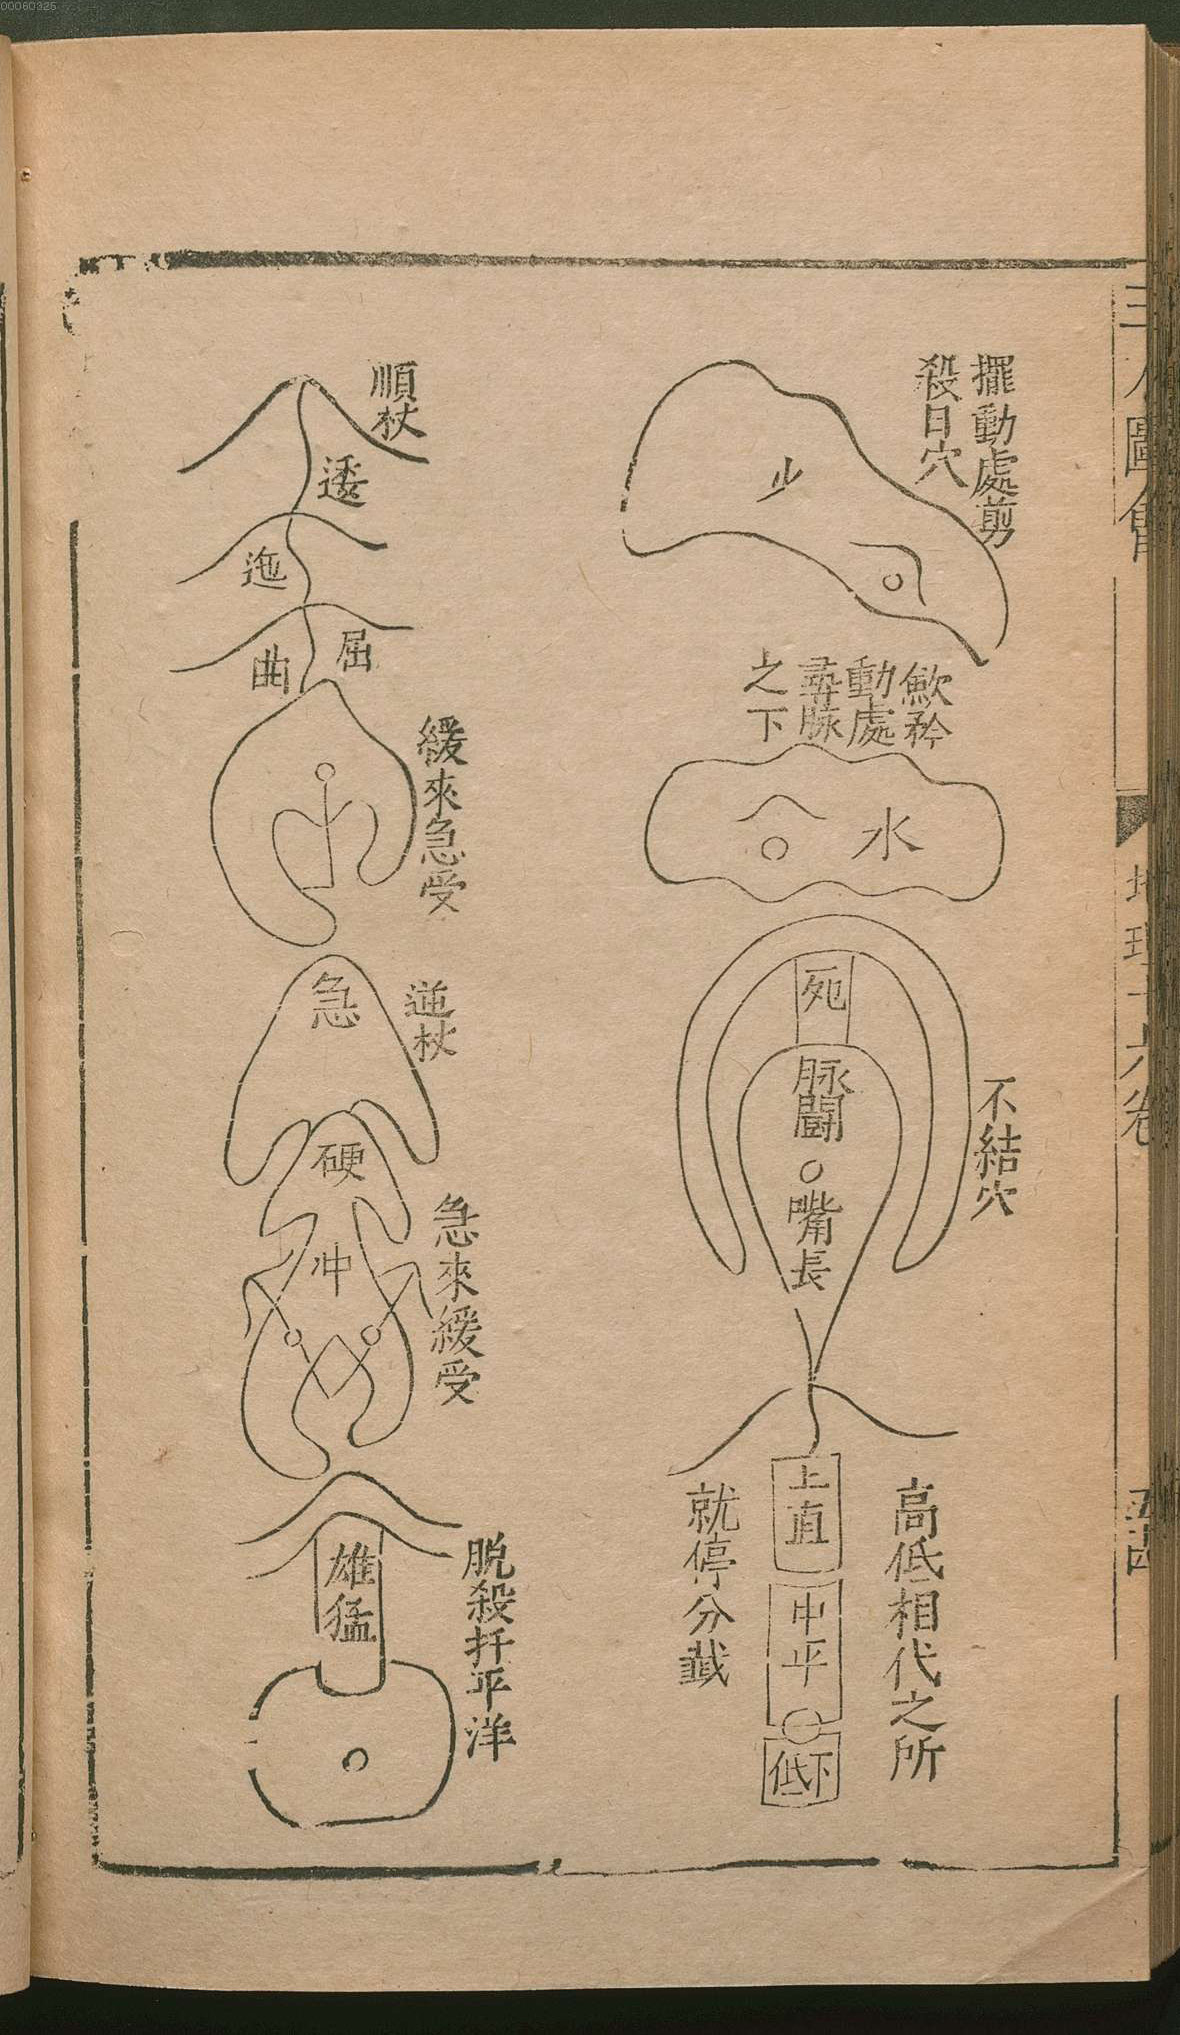 00060325
三才圖會
地理十六卷
擺動處剪
殺日穴
少
歛矜
動處
尋脉
之下
水
不結穴
死
脉鬪
嘴長
高低相代之所
上直
中平
下低
就停分藏
順杖
逶
迤
屈
曲
緩來急受
逆杖
急
硬
冲
急來緩受
雄猛
脫殺扦平洋